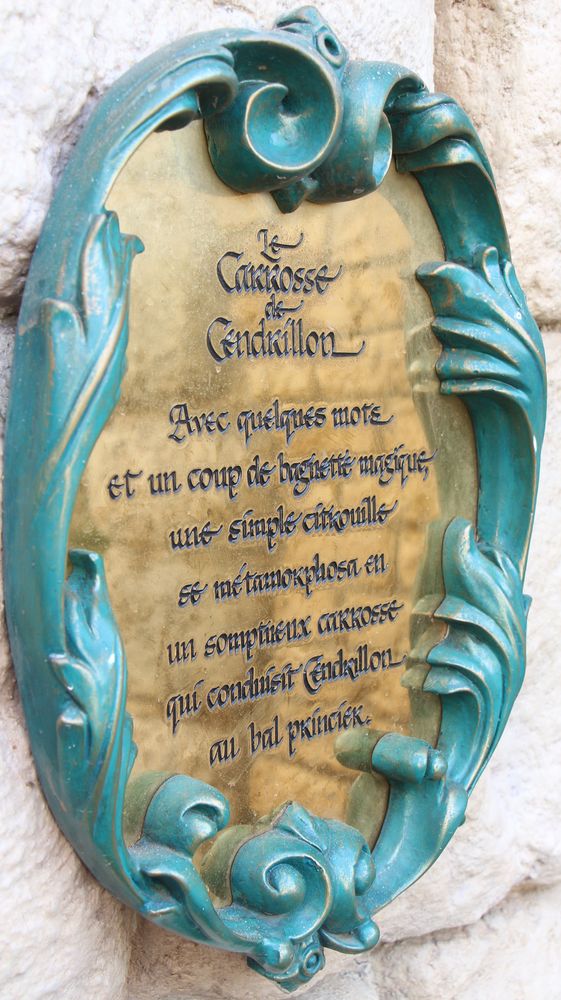 Le
Carrosse
de
Cendrillon
Avec quelques mots
et un coup de baguette magique,
une simple citrouille
se métamorphosa en
un somptueux carrosse
qui conduisit Cendrillon
au bal princier.